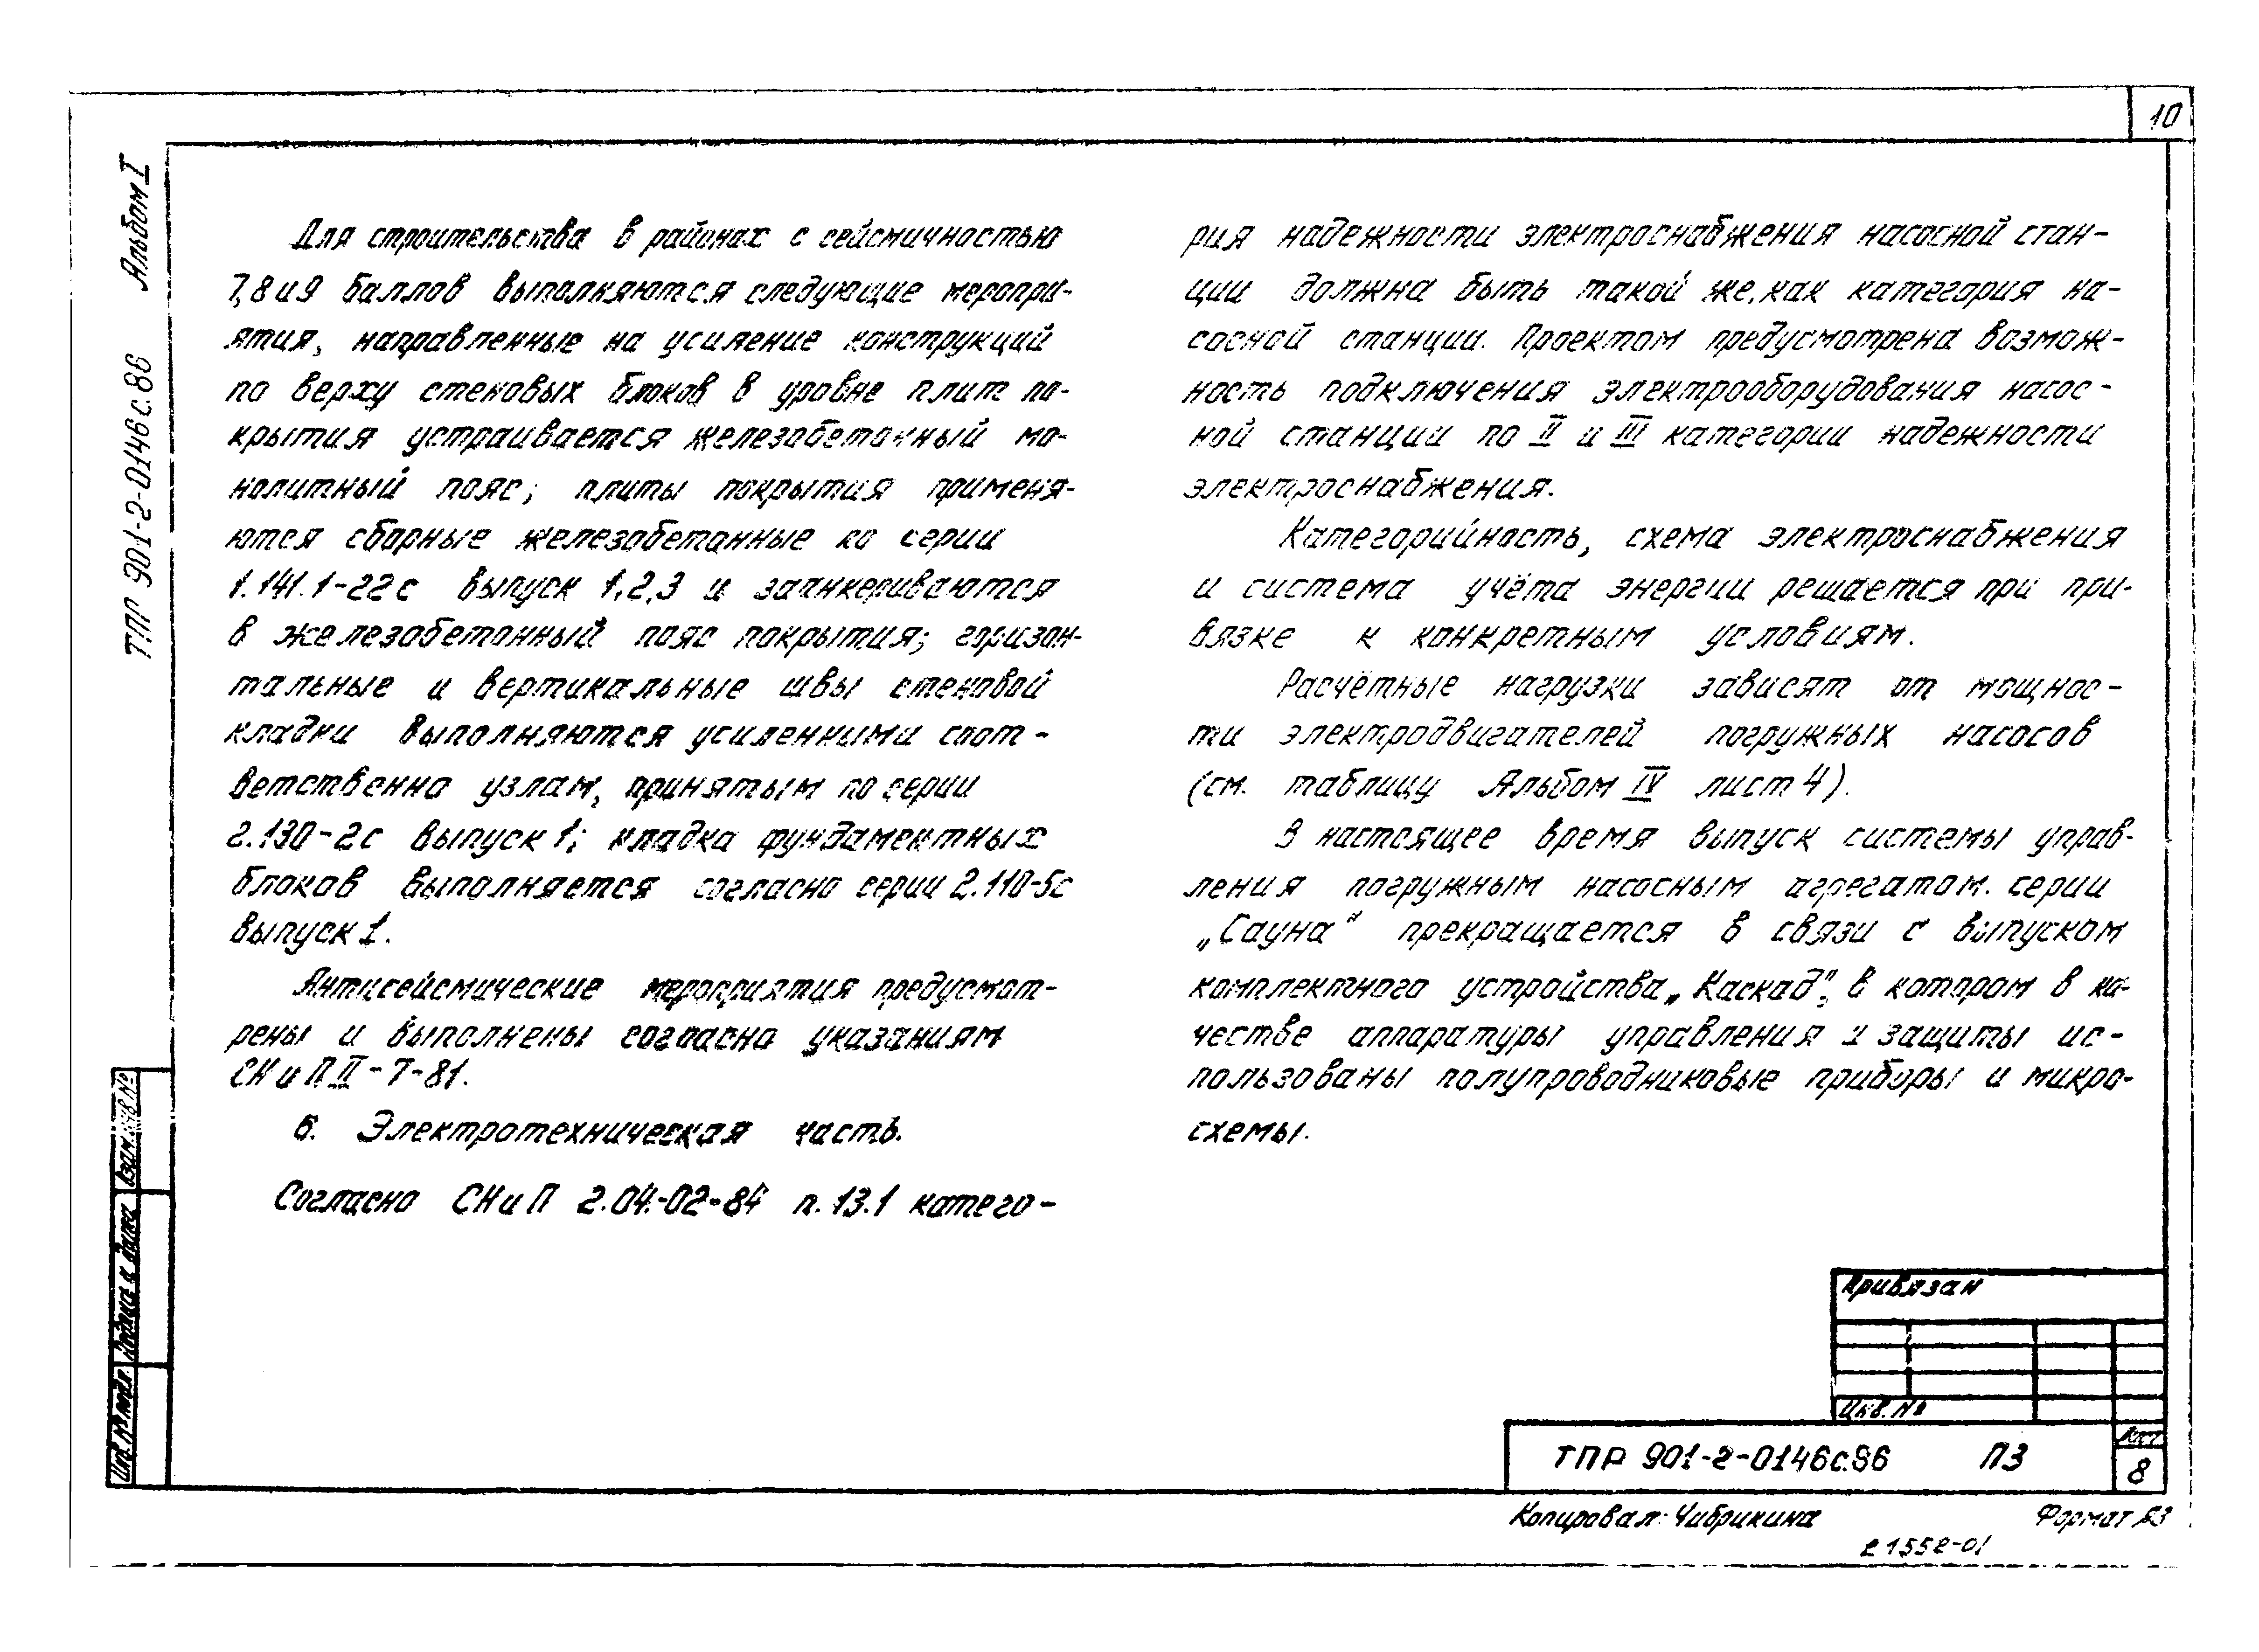 10
Альбом I
ТПР 901-2-0146с.86
Для строительства в районах с сейсмичностью
7,8 и 9 баллов выполняются следующие меропри-
ятия, направленные на усиление конструкций
по верху стеновых блоков в уровне плит по-
крытия устраивается железобетонный мо-
нолитный пояс; плиты покрытия применя-
ются сборные железобетонные по серии
1.141.1-22с выпуск 1,2,3 и заанкериваются
в железобетонный пояс покрытия; горизон-
тальные и вертикальные швы стеновой
кладки выполняются усиленными соот-
ветственно узлам, принятым по серии
2.130-2с выпуск 1; кладка фундаментных
блоков выполняется согласно серии 2.110-5с
выпуск 1.
Антисейсмические мероприятия предусмот-
рены и выполнены согласно указаниям
СНиП II-7-81.
6. Электротехническая часть.
Согласно СНиП 2.04.-02-84 п. 13.1 катего-
рия надежности электроснабжения насосной стан-
ции должна быть такой же, как категория на-
сосной станции. Проектом предусмотрена возмож-
ность подключения электрооборудования насос-
ной станции по II и III категории надежности
электроснабжения.
Категорийность, схема электроснабжения
и система учёта энергии решается при при-
вязке к конкретным условиям.
Расчётные нагрузки зависят от мощнос-
ти электродвигателей погружных насосов
(см. таблицу Альбом IV лист 4).
В настоящее время выпуск системы управ-
ления погружным насосным агрегатом. серии
„Сауна" прекращается в связи с выпуском
комплектного устройства „Каскад", в котором в ка-
честве аппаратуры управления и защиты ис-
пользованы полупроводниковые приборы и микро-
схемы.
Взам. инв. №
Подпись и дата
Инв. № подл.
Привязан
Инв. №
ТПР 901-2-0146с.86 ПЗ
Лист
8
Копировал: Чибрикина
Формат А3
21552-01